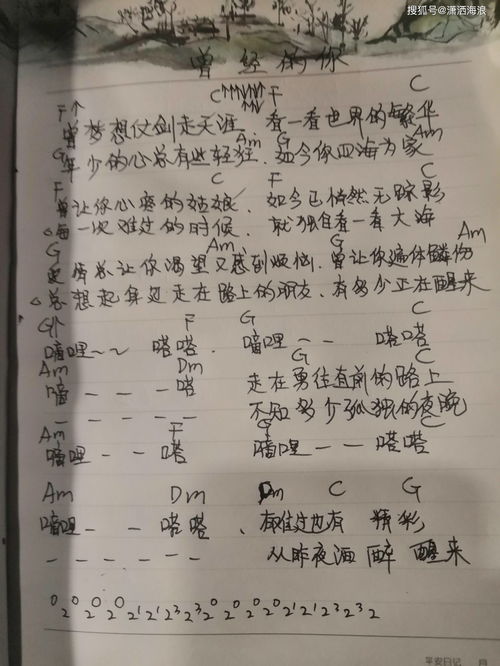 搜狐号@潇洒海浪
曾经的你
C F C
F
曾梦想仗剑走天涯 看一看世界的繁华
G Am G Am
年少的心总有些轻狂.如今你四海为家
F C F C
曾让你心疼的姑娘.如今已悄然无踪影
每一次难过的时候. 就独自看一看大海
G Am G Am
爱情总让你渴望又感到烦恼.曾让你遍体鳞伤
总想起身边走在路上的朋友.有多少正在醒来
G F G C
嘀哩~~ 嗒嗒. 嘀哩-- 嗒嗒
Am Dm G C
嘀 - - - 嗒 走在勇往直前的路上
- - - - - 不知多少孤独的夜晚
Am F G C
嘀哩-- 嗒 嘀哩-- 嗒嗒
Am Dm Dm C G
嘀哩-- 嗒嗒、有难过也有 精彩
- - - - - - 从昨夜酒 醉 醒来
平安日记